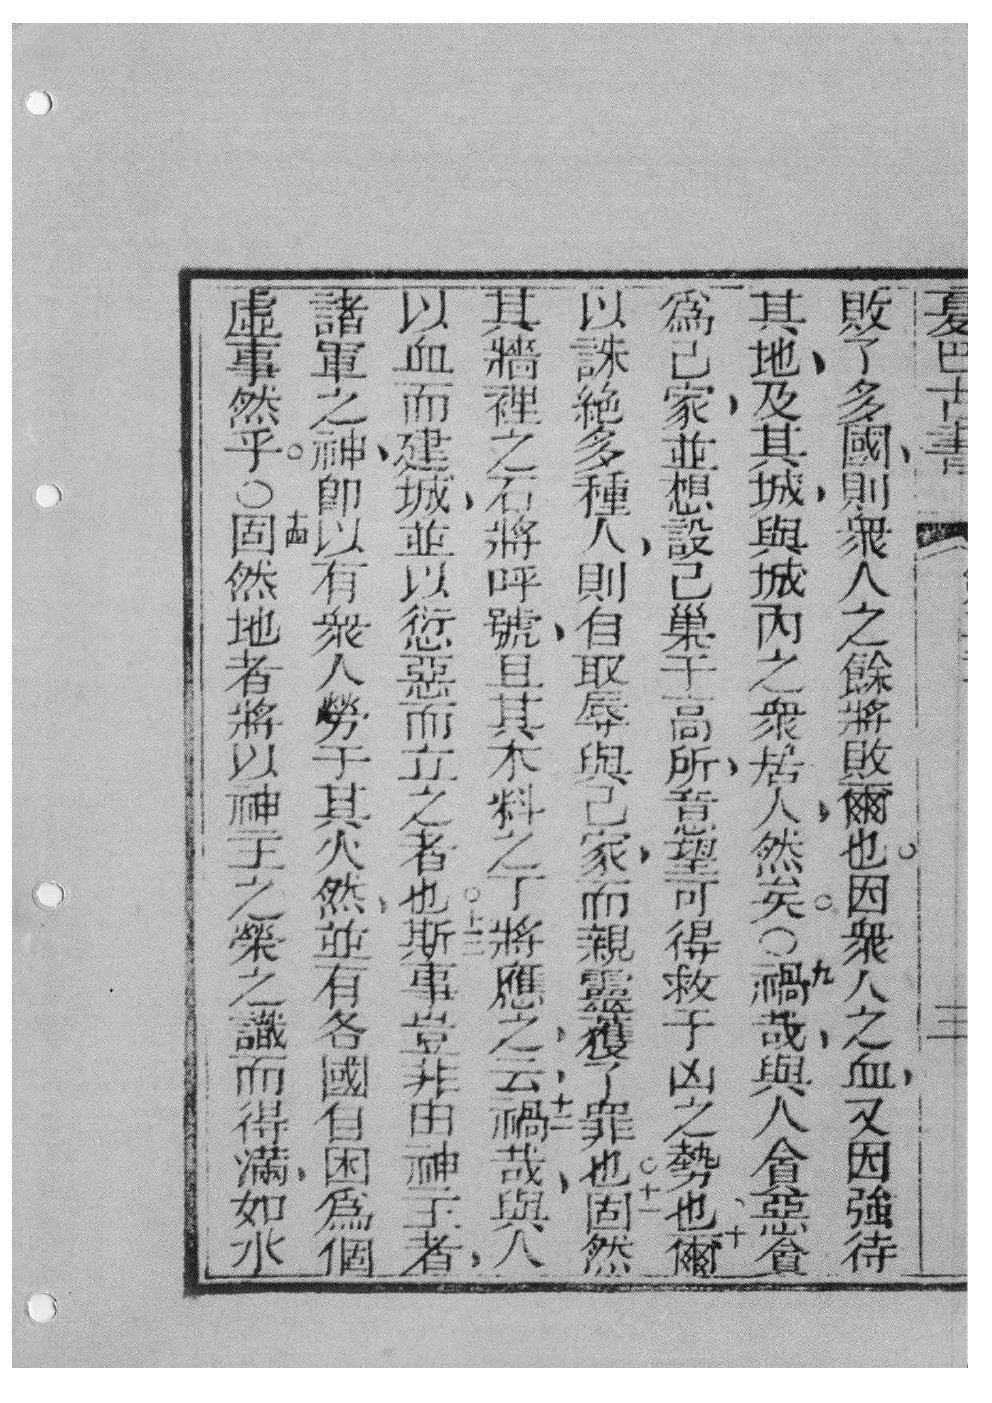 夏巴古書
三
敗了多國、則衆人之餘將敗爾也。因衆人之血、又因強待
其地、及其城、與城內之衆居人、然矣。○九禍哉、與人貪惡貪
爲己家、並想設己巢于高所、意望可得救于凶之勢也、十爾
以誅絕多種人、則自取辱與己家、而親靈獲了罪也。十一固然
其牆裡之石將呼號、且其木料之了將應之、云、十二禍哉、與人
以血而建城、並以愆惡而立之者也。十三斯事豈非由神主者、
諸軍之神、即以有衆人勞于其火然、並有各國自困爲個
虛事然乎。○十四固然地者將以神主之榮之識而得滿、如水